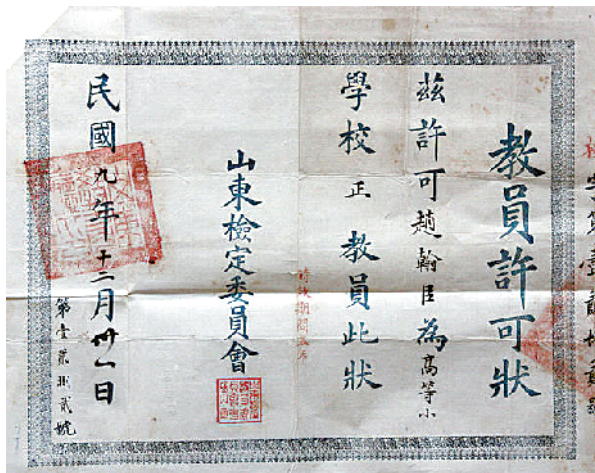 教員許可狀
茲許可趙翰臣為高等小
學校正教員此狀
山東檢定委員會
民國九年十二月卅一日